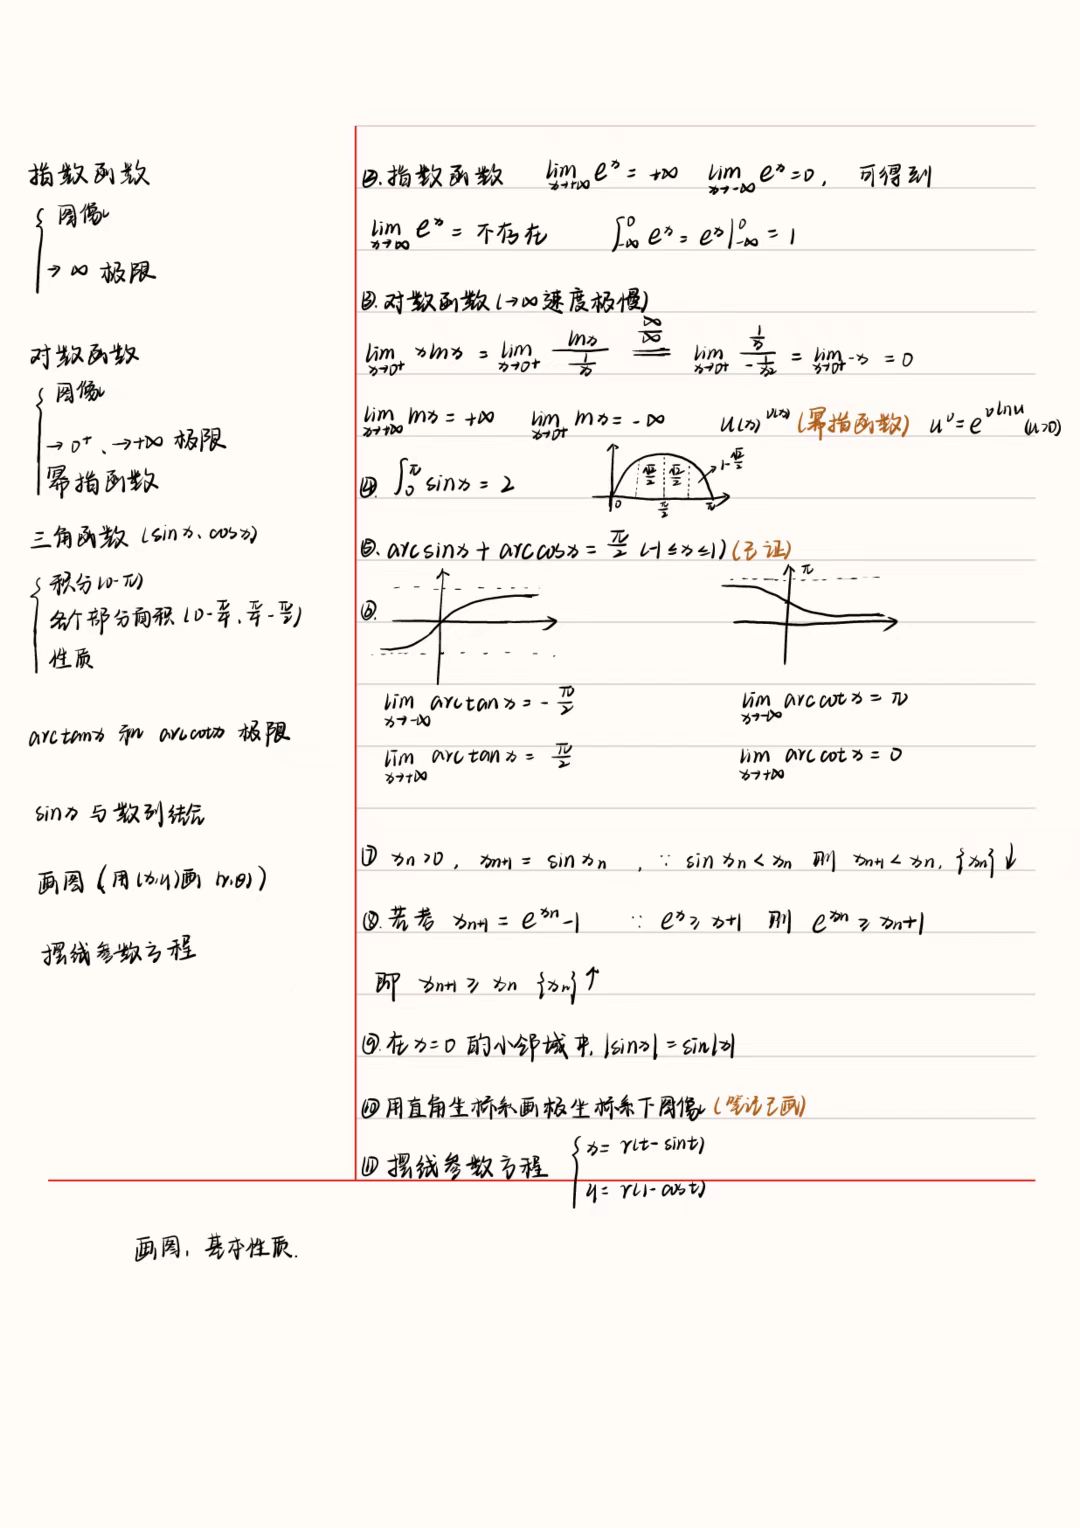 指数函数
图像
→∞ 极限
对数函数
图像
→0⁺、→+∞ 极限
幂指函数
三角函数 (sinx、cosx)
积分(0-π)
各个部分面积 (0-π/4、π/4-π/2)
性质
arctanx 和 arccotx 极限
sinx 与数列结合
画图 (用(x,y)画 (r,θ))
摆线参数方程
②.指数函数 lim x→+∞ eˣ = +∞ lim x→-∞ eˣ = 0, 可得到
lim x→∞ eˣ = 不存在 ∫₋∞⁰ eˣ = eˣ|₋∞⁰ = 1
③.对数函数 (→∞速度极慢)
lim x→0⁺ xlnx = lim x→0⁺ lnx/(1/x) =(∞/∞)= lim x→0⁺ (1/x)/(-1/x²) = lim x→0⁺ -x = 0
lim x→+∞ lnx = +∞ lim x→0⁺ lnx = -∞ u(x)^v(x) (幂指函数) uᵛ = e^(vlnu) (u>0)
④ ∫₀^π sinx = 2 √2/2 √2/2 1-√2/2 0 π/2 π
⑤. arcsinx + arccosx = π/2 (-1≤x≤1) (已证)
⑥. π
lim x→-∞ arctanx = -π/2 lim x→-∞ arccotx = π
lim x→+∞ arctanx = π/2 lim x→+∞ arccotx = 0
⑦ xn>0, xn+1 = sin xn , ∵ sin xn < xn 则 xn+1 < xn, {xn}↓
⑧.若考 xn+1 = e^xn - 1 ∵ eˣ ≥ x+1 则 e^xn ≥ xn+1
即 xn+1 ≥ xn {xn}↑
⑨.在x=0 的小邻域中, |sinx| = sin|x|
⑩ 用直角坐标系画极坐标系下图像 (笔记已画)
⑪ 摆线参数方程 { x = r(t-sint)
y = r(1-cost)
画图, 基本性质.